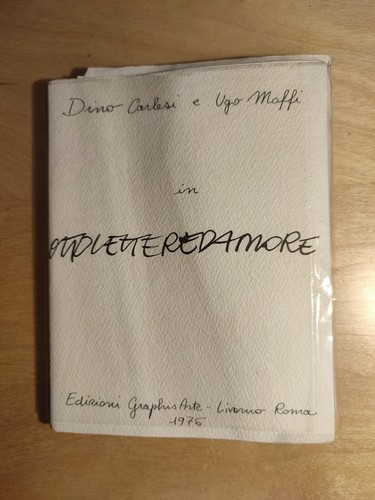 Dino Carlesi e Ugo Maffi
in
OTTOLETTERED'AMORE
Edizioni Graphis Arte - Livorno Roma
1976